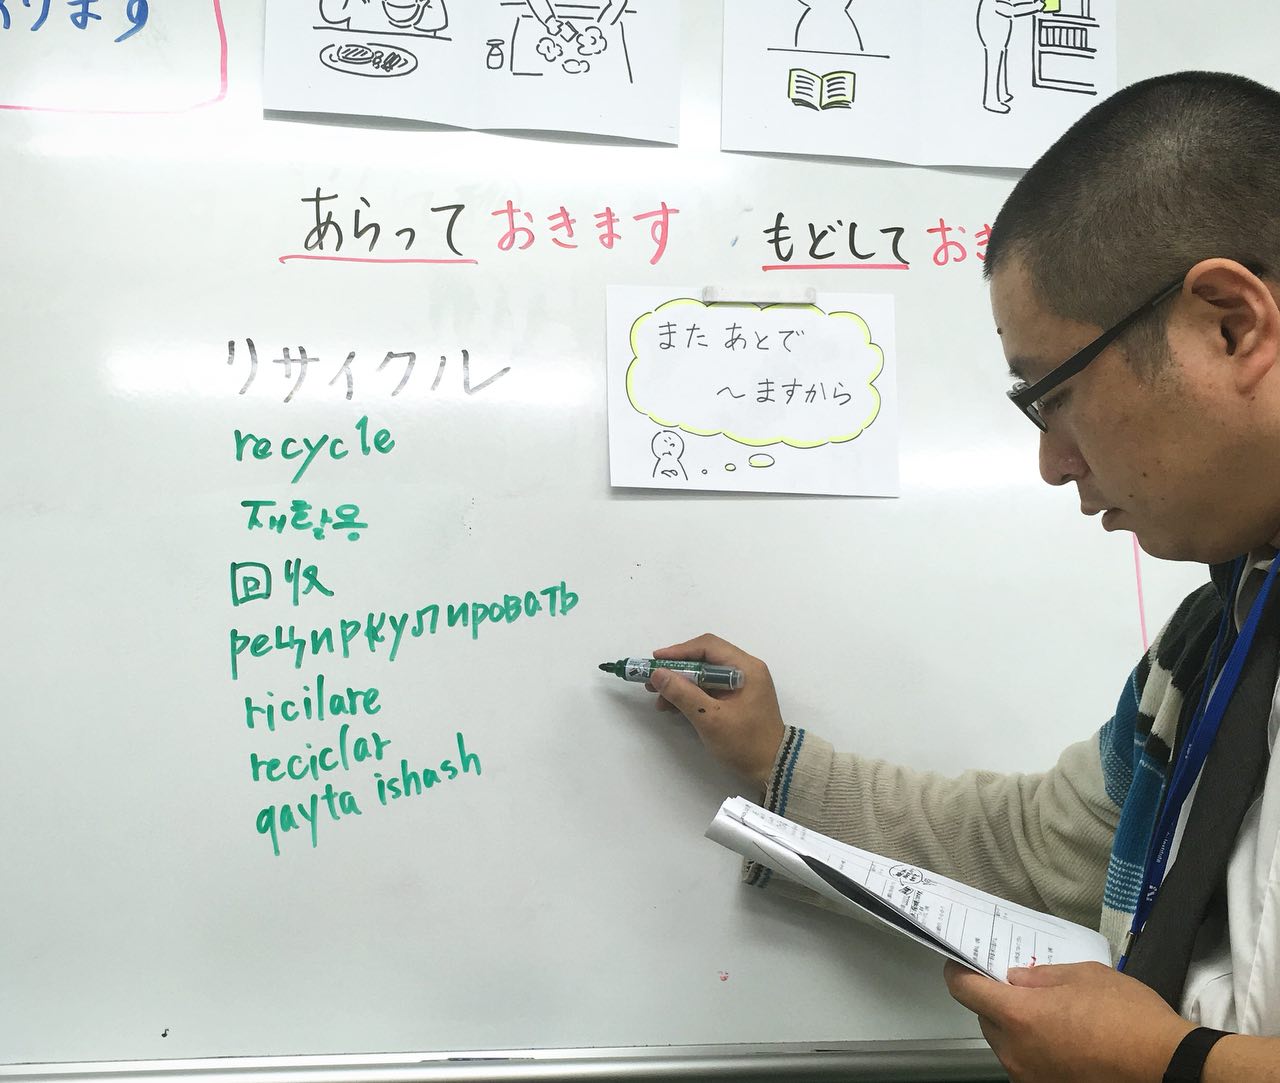 ります
あらって おきます
もどして おき
また あとで
～ますから
リサイクル
recycle
재활용
回收
рециркулировать
ricilare
reciclar
qayta ishash